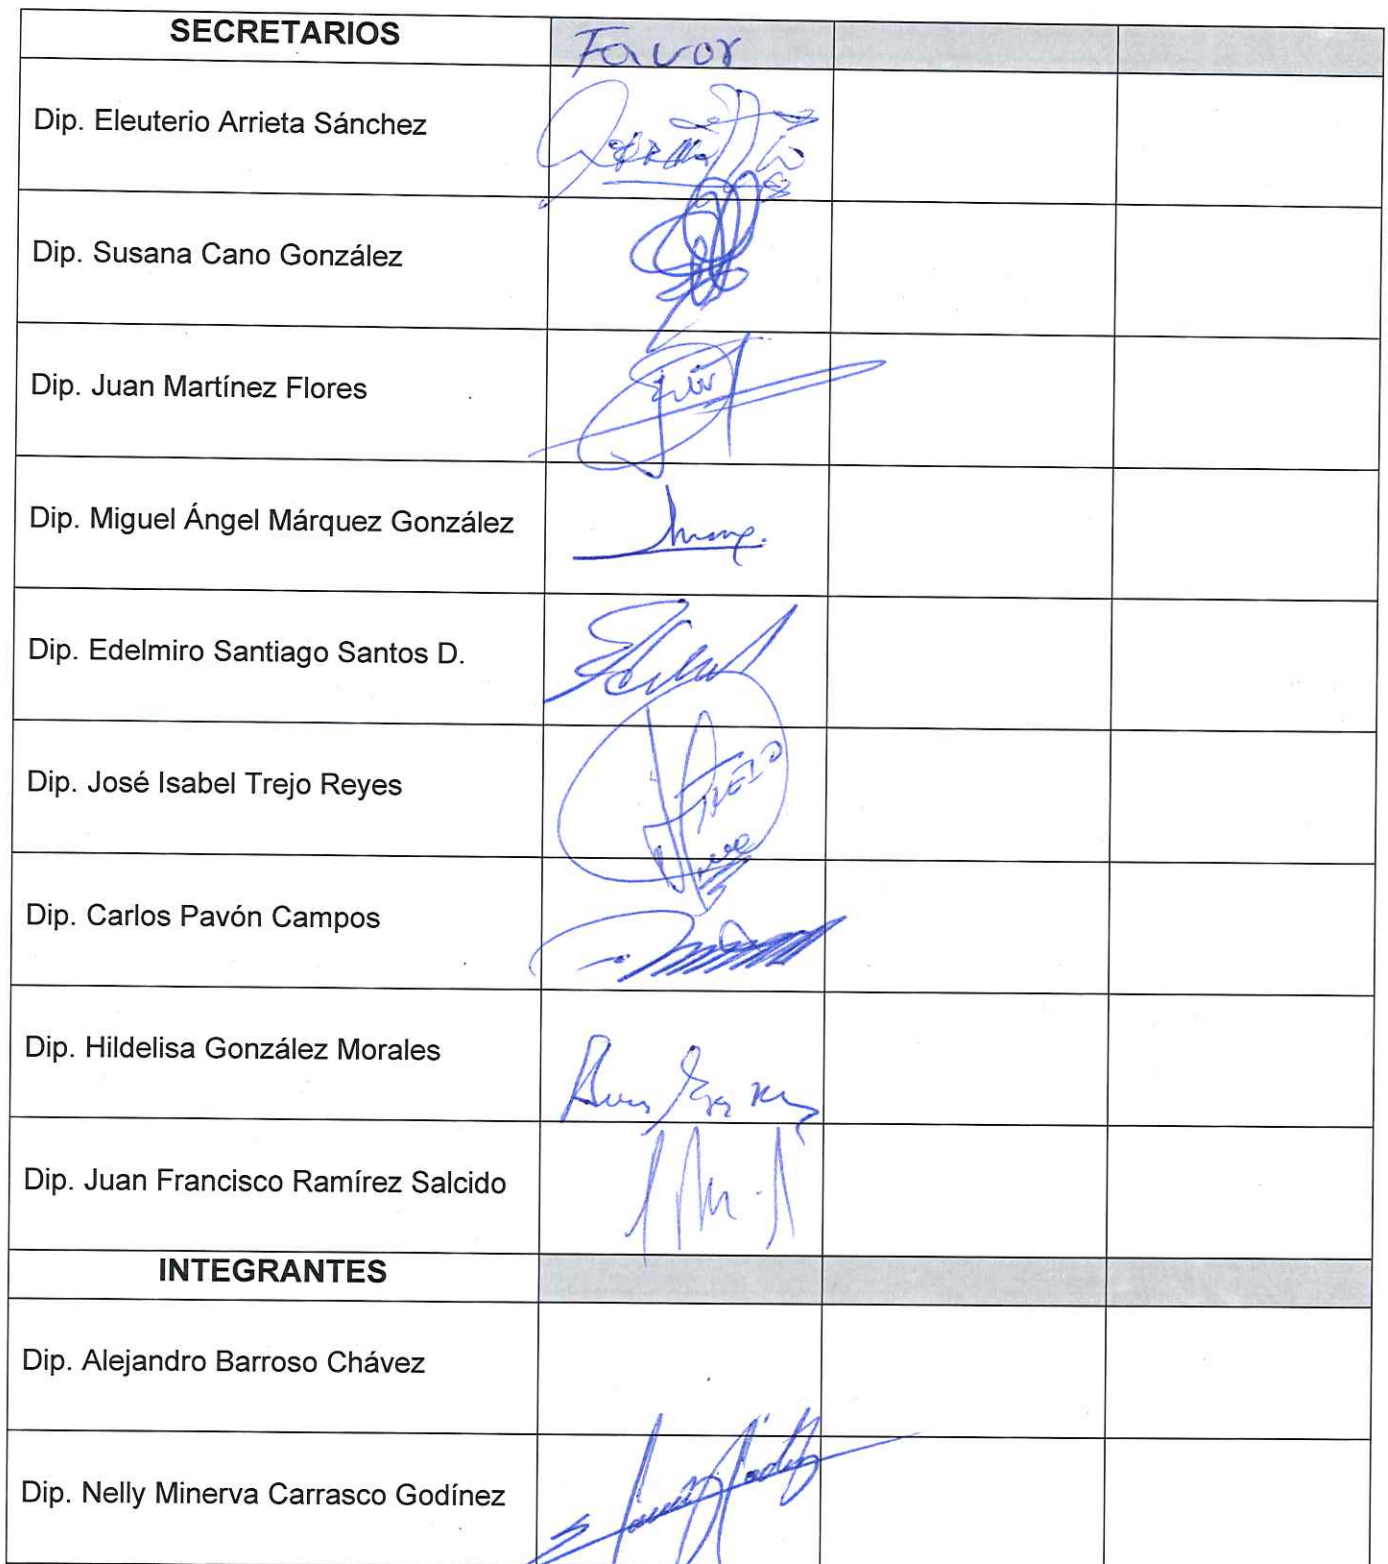 SECRETARIOS Favor
Dip. Eleuterio Arrieta Sánchez
Dip. Susana Cano González
Dip. Juan Martínez Flores
Dip. Miguel Ángel Márquez González
Dip. Edelmiro Santiago Santos D.
Dip. José Isabel Trejo Reyes
TREJO
Dip. Carlos Pavón Campos
Dip. Hildelisa González Morales
Dip. Juan Francisco Ramírez Salcido
INTEGRANTES
Dip. Alejandro Barroso Chávez
Dip. Nelly Minerva Carrasco Godínez